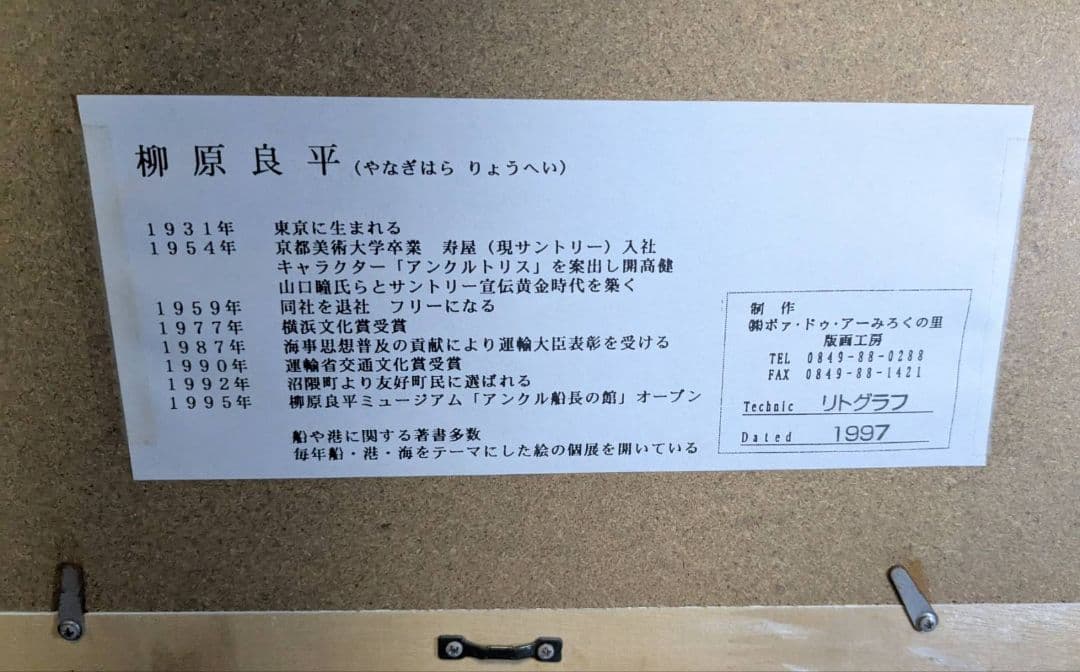 柳原良平(やなぎはら りょうへい)
1931年 東京に生まれる
1954年 京都美術大学卒業 寿屋(現サントリー)入社
キャラクター「アンクルトリス」を案出し開高健
山口瞳氏らとサントリー宣伝黄金時代を築く
1959年 同社を退社 フリーになる
1977年 横浜文化賞受賞
1987年 海事思想普及の貢献により運輸大臣表彰を受ける
1990年 運輸省交通文化賞受賞
1992年 沼隈町より友好町民に選ばれる
1995年 柳原良平ミュージアム「アンクル船長の館」オープン
船や港に関する著書多数
毎年船・港・海をテーマにした絵の個展を開いている
制作
㈱ボァ・ドゥ・アーみろくの里
版画工房
TEL 0849-88-0288
FAX 0849-88-1421
Technic リトグラフ
Dated 1997